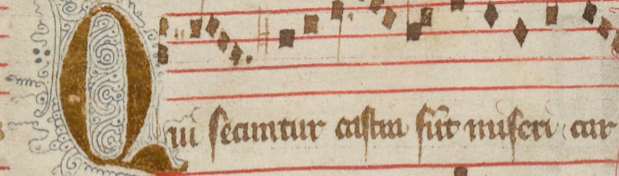 Qui secuntur castra sūt miseri car